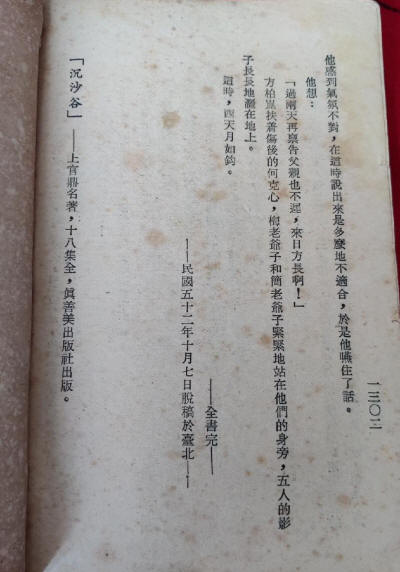 一三〇二
他感到氣氛不對，在這時說出來是多麼地不適合，於是他嚥住了話。
他想：
「過兩天再稟告父親也不遲，來日方長啊！」
方柏崑扶着傷後的何克心，梅老爺子和簡老爺子緊緊地站在他們的身旁，五人的影
子長長地灑在地上。
這時，西天月如鈎。
——全書完——
——民國五十二年十月七日脫稿於臺北——
「沉沙谷」——上官鼎名著，十八集全，眞善美出版社出版。